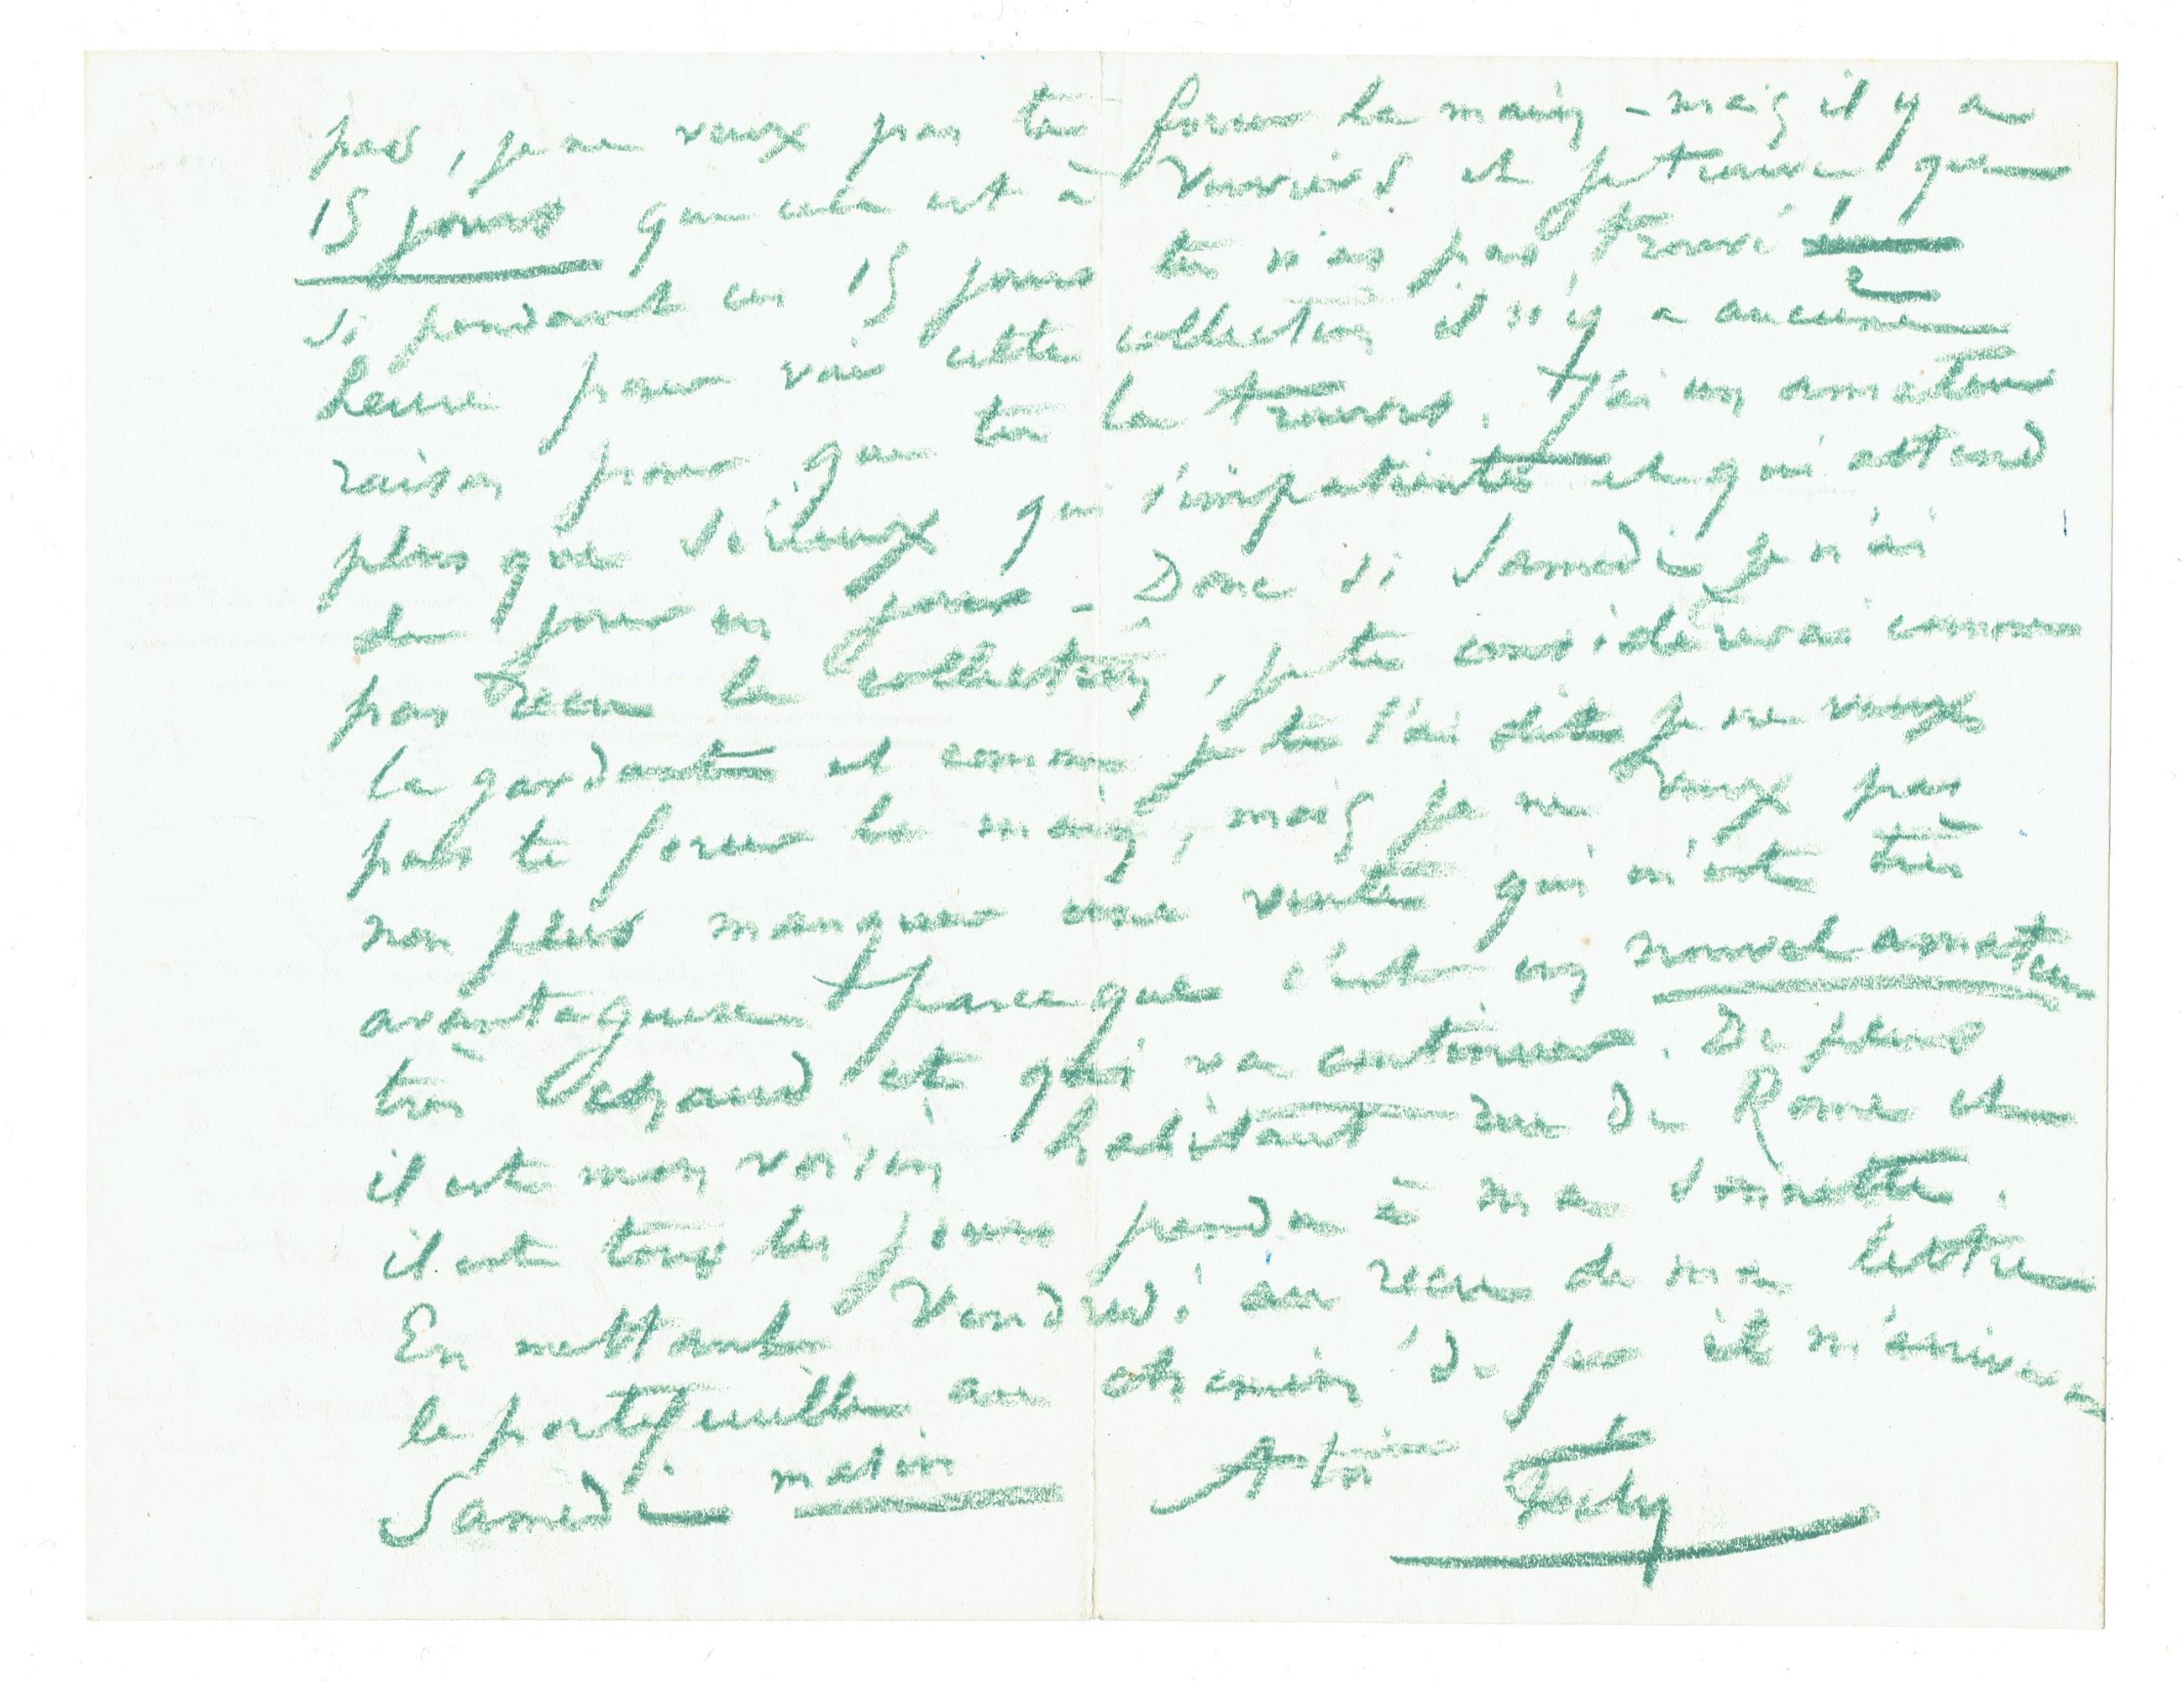 pas, je ne veux pas te forcer la main – mais il y a
15 jours que cela est à Verviers et je trouve que
si pendant ces 15 jours tu n'as pas trouvé 1
heure pour voir cette collection il n'y a aucune
raison pour que tu la trouves. J'ai un amateur
plus que sérieux qui s'impatiente et qui attend
de jour en jour – Donc si Samedi je n'ai
pas recu la collection, je te considèrerai comme
la gardant et comme je te l'ai dit je ne veux
pas te forcer la main, mais je ne veux pas
non plus manquer une vente qui m'est très
avantageuse parce que c'est un nouvel amateur
très chaud et qui va continuer. De plus
il est mon voisin habitant rue de Rome et
il est tous les jours pendu à ma sonnette.
En mettant Vendredi au recu de ma lettre
le portefeuille au chemin de fer il m'arrivera
Samedi matin A toi